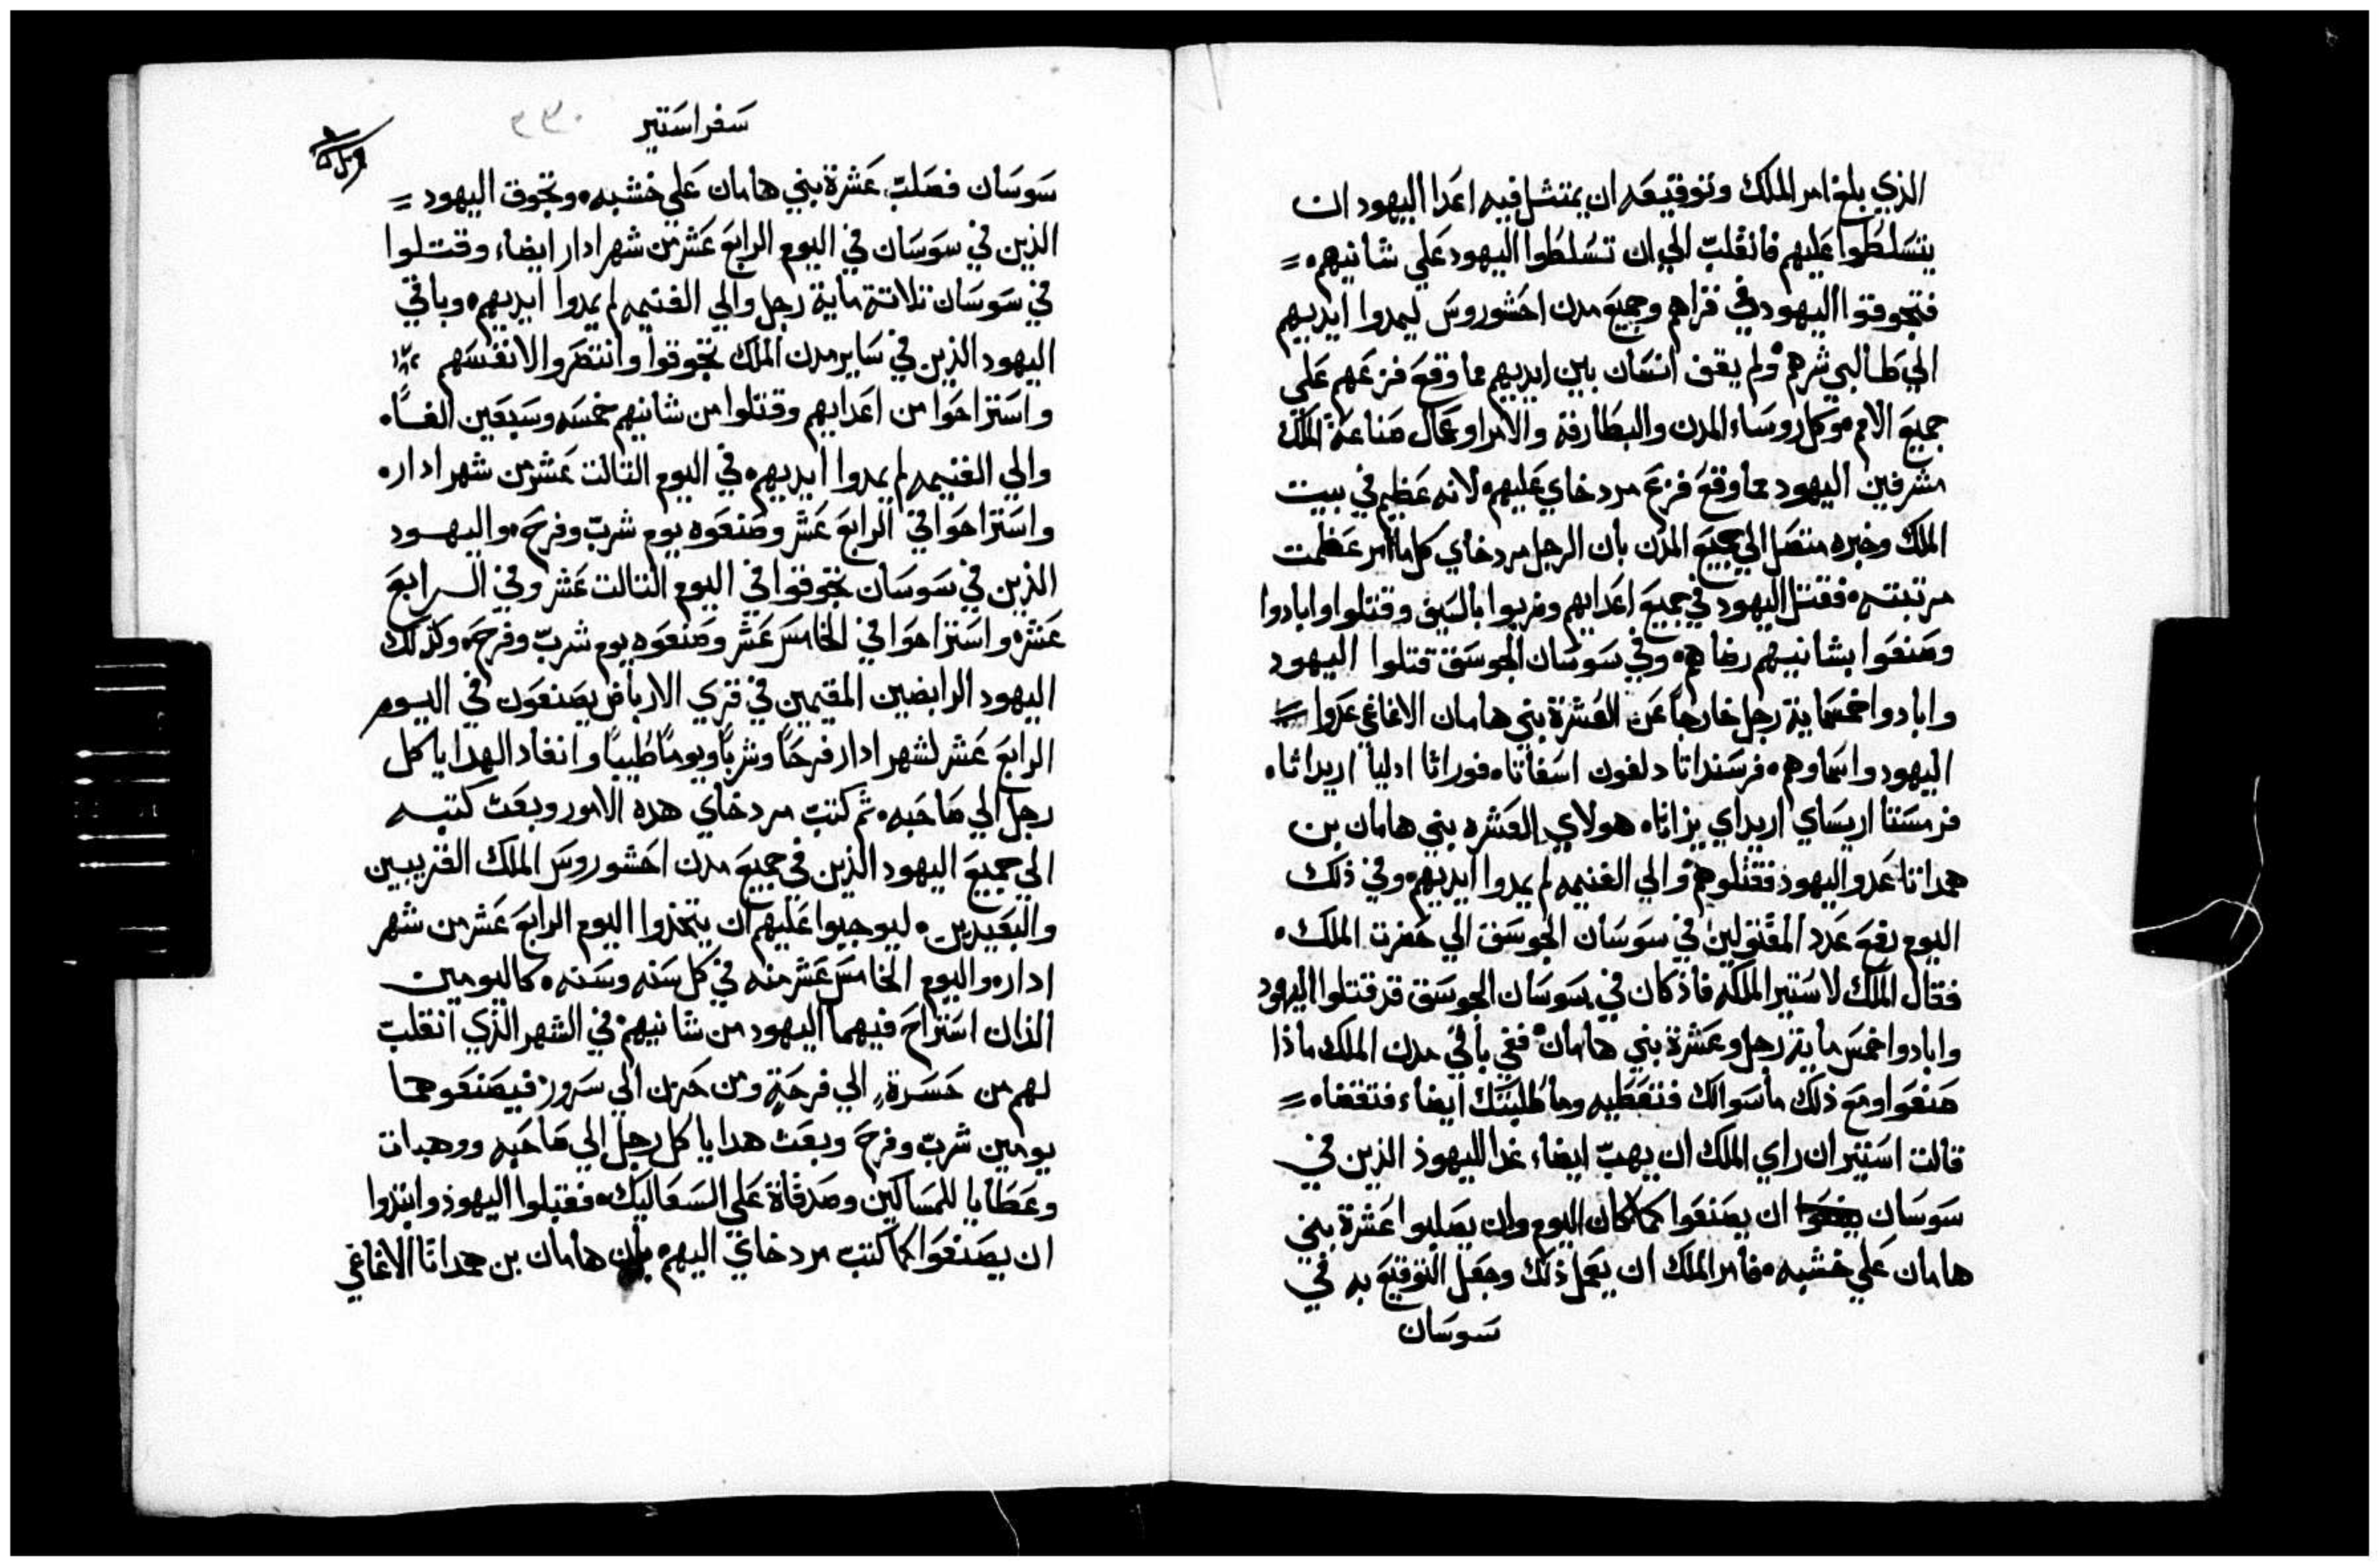 الذي بلغ امر الملك وتوقيعه ان يمتثل فيه اعدا اليهود ان
يتسلطوا عليهم فانقلب الي ان تسلطوا اليهود علي شانيهم =
فتجوقوا اليهود في قراهم وجميع مدن احشوروس ليمدوا ايديهم
الي طالبي شرهم ولم يقف انسان بين ايديهم مما وقع فزعهم علي
جميع الامم وكل روساء المدن والبطارقة والامرا وعمال صناعة الملك
مشرفين اليهود مما وقع فزع مردخاي عليهم لانه عظيم في بيت
الملك وخبره متصل الي جميع المدن بان الرجل مردخاي كلما امر عظمت
مرتبته فقتل اليهود في جميع اعدايهم وضربوا بالسيف وقتلوا وابادوا
وصنعوا بشانيهم رضاهم وفي سوسان الجوسق قتلوا اليهود
وابادوا خمسماية رجل خارجا عن العشرة بني هامان الاغاغي عدوا =
اليهود واسماوهم فرسنداتا دلفون اسفاتا فوراثا ادليا اريداثا
فرمستا اريساي اريداي يزاثا هولاي العشره بني هامان بن
همداتا عدو اليهود فقتلوهم والي الغنيمه لم يمدوا ايديهم وفي ذلك
اليوم رفع عدد المقتولين في سوسان الجوسق الي حضرت الملك
فقال الملك لاستير الملكه فاذ كان في سوسان الجوسق قد قتلوا اليهود
وابادوا خمس ماية رجل وعشرة بني هامان ففي باقي مدن الملك ماذا
صنعوا ومع ذلك ما سوالك فنعطيه وما طلبتك ايضاء فتقضاه =
قالت استير ان راي الملك ان يهب ايضاء غدا لليهوذ الذين في
سوسان ان يصنعوا كما كان اليوم وان يصلبوا عشرة بني
هامان علي خشبه فامر الملك ان يعمل ذلك وجعل التوقيع به في
سوسان
سفر استير ٢٣٠
سوسان فصلب عشرة بني هامان علي خشبه وتجوق اليهود =
الذين في سوسان في اليوم الرابع عشر من شهر ادار ايضاء وقتلوا
في سوسان تلاتة ماية رجل والي الغنيمه لم يمدوا ايديهم وباقي
اليهود الذين في ساير مدن الملك تجوقوا وانتصروا لانفسهم
واستراحوا من اعدايهم وقتلوا من شانيهم خمسه وسبعين الفًا
والي الغنيمه لم يمدوا ايديهم في اليوم التالت عشر من شهر ادار
واستراحوا في الرابع عشر وصنعوه يوم شرب وفرح واليهود
الذين في سوسان تجوقوا في اليوم التالت عشر وفي الرابع
عشر واستراحوا في الخامس عشر وصنعوه يوم شرب وفرح وكذلك
اليهود الرابضين المقيمين في قري الارباض يصنعون في اليوم
الرابع عشر لشهر ادار فرحًا وشربًا ويومًا طيبًا وانفاد الهدايا كل
رجل الي صاحبه ثم كتب مردخاي هده الامور وبعث كتبه
الي جميع اليهود الذين في جميع مدن احشوروس الملك القريبين
والبعيدين ليوجبوا عليهم ان يتخذوا اليوم الرابع عشر من شهر
ادار واليوم الخامس عشر منه في كل سنه وسنه كاليومين
الذان استراح فيهما اليهود من شانيهم في الشهر الذي انقلب
لهم من حسرة الي فرحة ومن حزن الي سرور فيصنعوهما
يومين شرب وفرح وبعث هدايا كل رجل الي صاحبه ووهبات
وعطايا للمساكين وصدقاة علي السعاليك فقبلوا اليهوذ وابتدوا
ان يصنعوا كما كتب مردخاي اليهم بان هامان بن همداثا الاغاغي